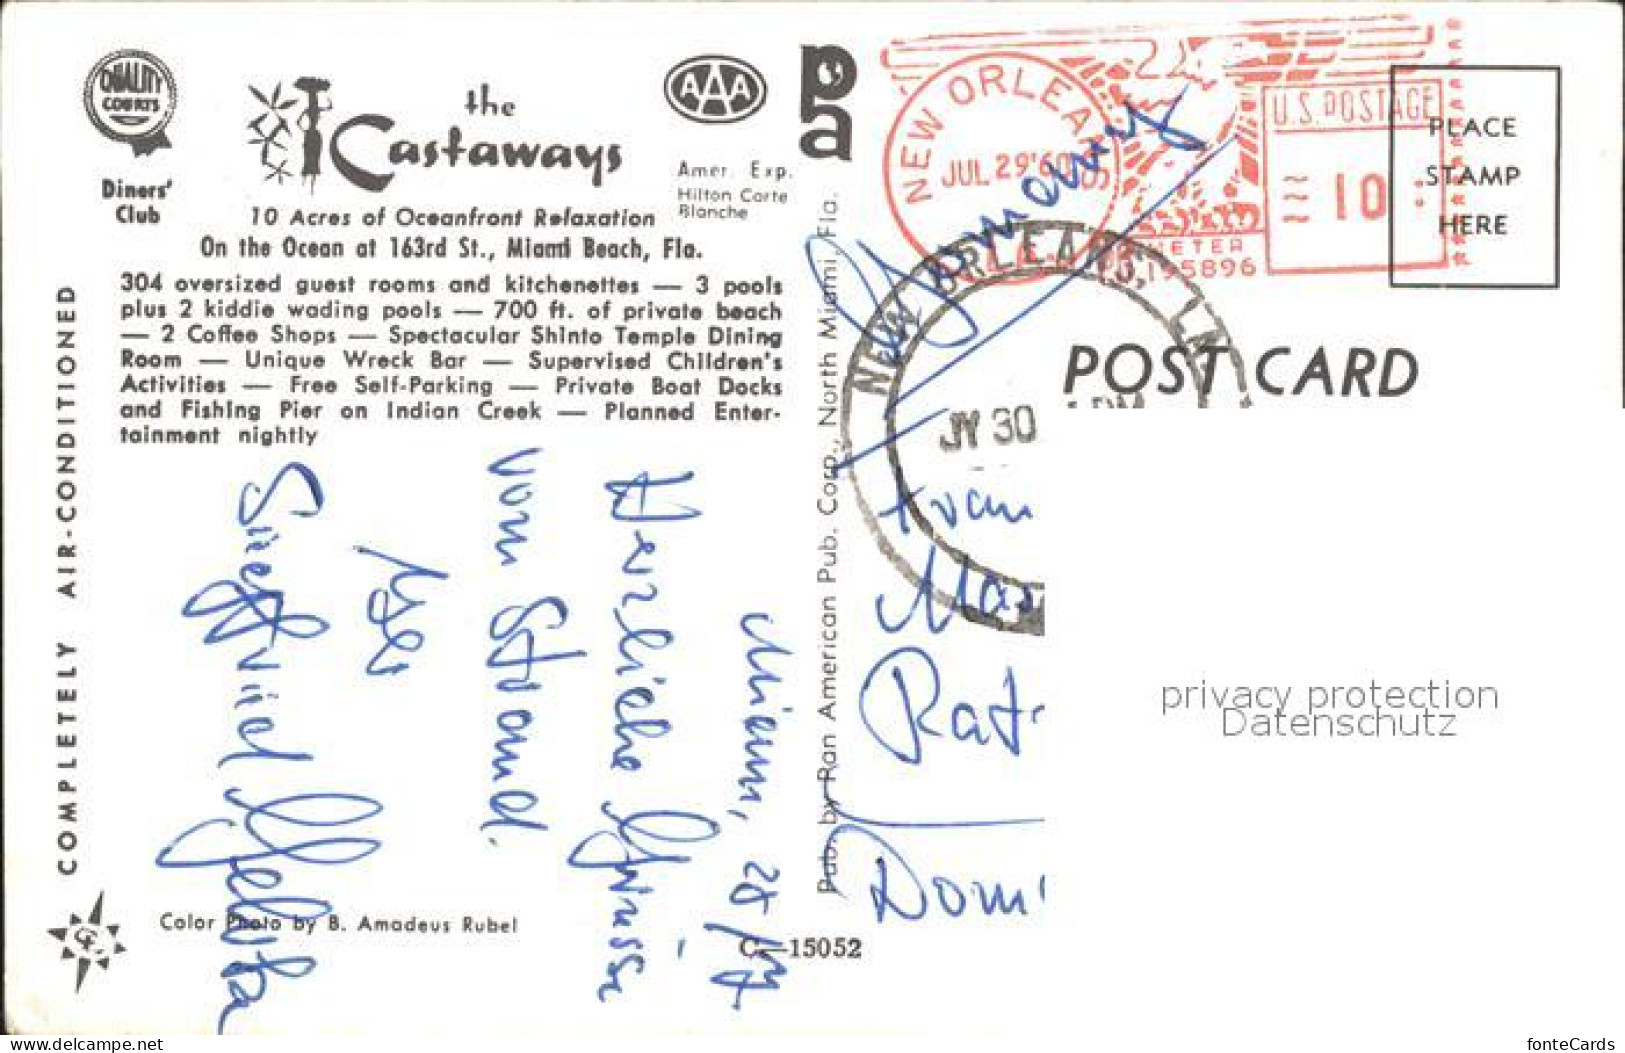 QUALITY
COURTS
Diners'
Club
the
Castaways
AAA
Amer. Exp.
Hilton Carte
Blanche
10 Acres of Oceanfront Relaxation
On the Ocean at 163rd St., Miami Beach, Fla.
304 oversized guest rooms and kitchenettes — 3 pools
plus 2 kiddie wading pools — 700 ft. of private beach
— 2 Coffee Shops — Spectacular Shinto Temple Dining
Room — Unique Wreck Bar — Supervised Children's
Activities — Free Self-Parking — Private Boat Docks
and Fishing Pier on Indian Creek — Planned Enter-
tainment nightly
COMPLETELY AIR-CONDITIONED
Miami, 28/
Herzliche Grüsse
vom Strand.
Color Photo by B. Amadeus Rubel
C—15052
Pub. by Ran American Pub. Corp., North Miami, Fla.
pa
NEW ORLEANS
JUL 29'60
U.S. POSTAGE
10
METER
195896
PLACE
STAMP
HERE
NEW ORLEANS, LA
JY 30
POST CARD
Germany
Frau
Rat
Domi
privacy protection
Datenschutz
www.delcampe.net
fonteCards